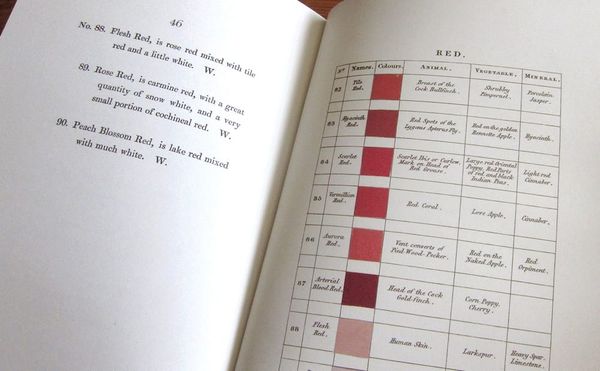 46
No. 88. Flesh Red, is rose red mixed with tile
red and a little white. W.
89. Rose Red, is carmine red, with a great
quantity of snow white, and a very
small portion of cochineal red. W.
90. Peach Blossom Red, is lake red mixed
with much white. W.
RED.
No Names. Colours. ANIMAL. VEGETABLE. MINERAL.
82 Tile Red. Breast of the Cock Bullfinch. Shrubby Pimpernel. Porcelain Jasper.
83 Hyacinth Red. Red Spots of the Lygaeus Apterus Fly. Red on the golden Rennette Apple. Hyacinth.
84 Scarlet Red. Scarlet Ibis or Curlew, Mark on Head of Red Grouse. Large red Oriental Poppy, Red Parts of red and black Indian Peas. Light red Cinnaber.
85 Vermillion Red. Red Coral. Love Apple. Cinnaber.
86 Aurora Red. Vent converts of Pied Wood-Pecker. Red on the Naked Apple. Red Orpiment.
87 Arterial Blood Red. Head of the Cock Gold-finch. Corn Poppy, Cherry.
88 Flesh Red. Human Skin. Larkspur. Heavy Spar. Limestone.